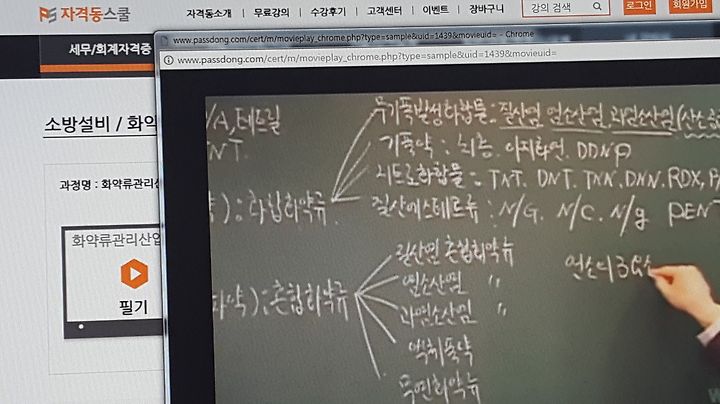 자격동스쿨
자격동소개 무료강의 수강후기 고객센터 이벤트 장바구니
강의 검색
로그인 회원가입
세무/회계자격증
www.passdong.com/cert/m/movieplay_chrome.php?type=sample&uid=1439&movieuid= - Chrome
www.passdong.com/cert/m/movieplay_chrome.php?type=sample&uid=1439&movieuid=
소방설비 / 화약
과정명 : 화약류관리산
화약류관리산업
필기
/A, 테트릴
NT.
무기폭발성화합물 : 질산염 염소산염, 과염소산염 (산소
기폭약 : 뇌홍. 아지화연. DDNP
니트로화합물 : TNT. DNT. TNN. DNN. RDX, P
질산에스테르류 : N/G. N/C. N/g PENT
) : 화합화약류
질산염 혼합화약류
화약) : 혼합화약류
염소산염 〃
과염소산염 〃
액체폭약
무연화약류
연소의 3요소